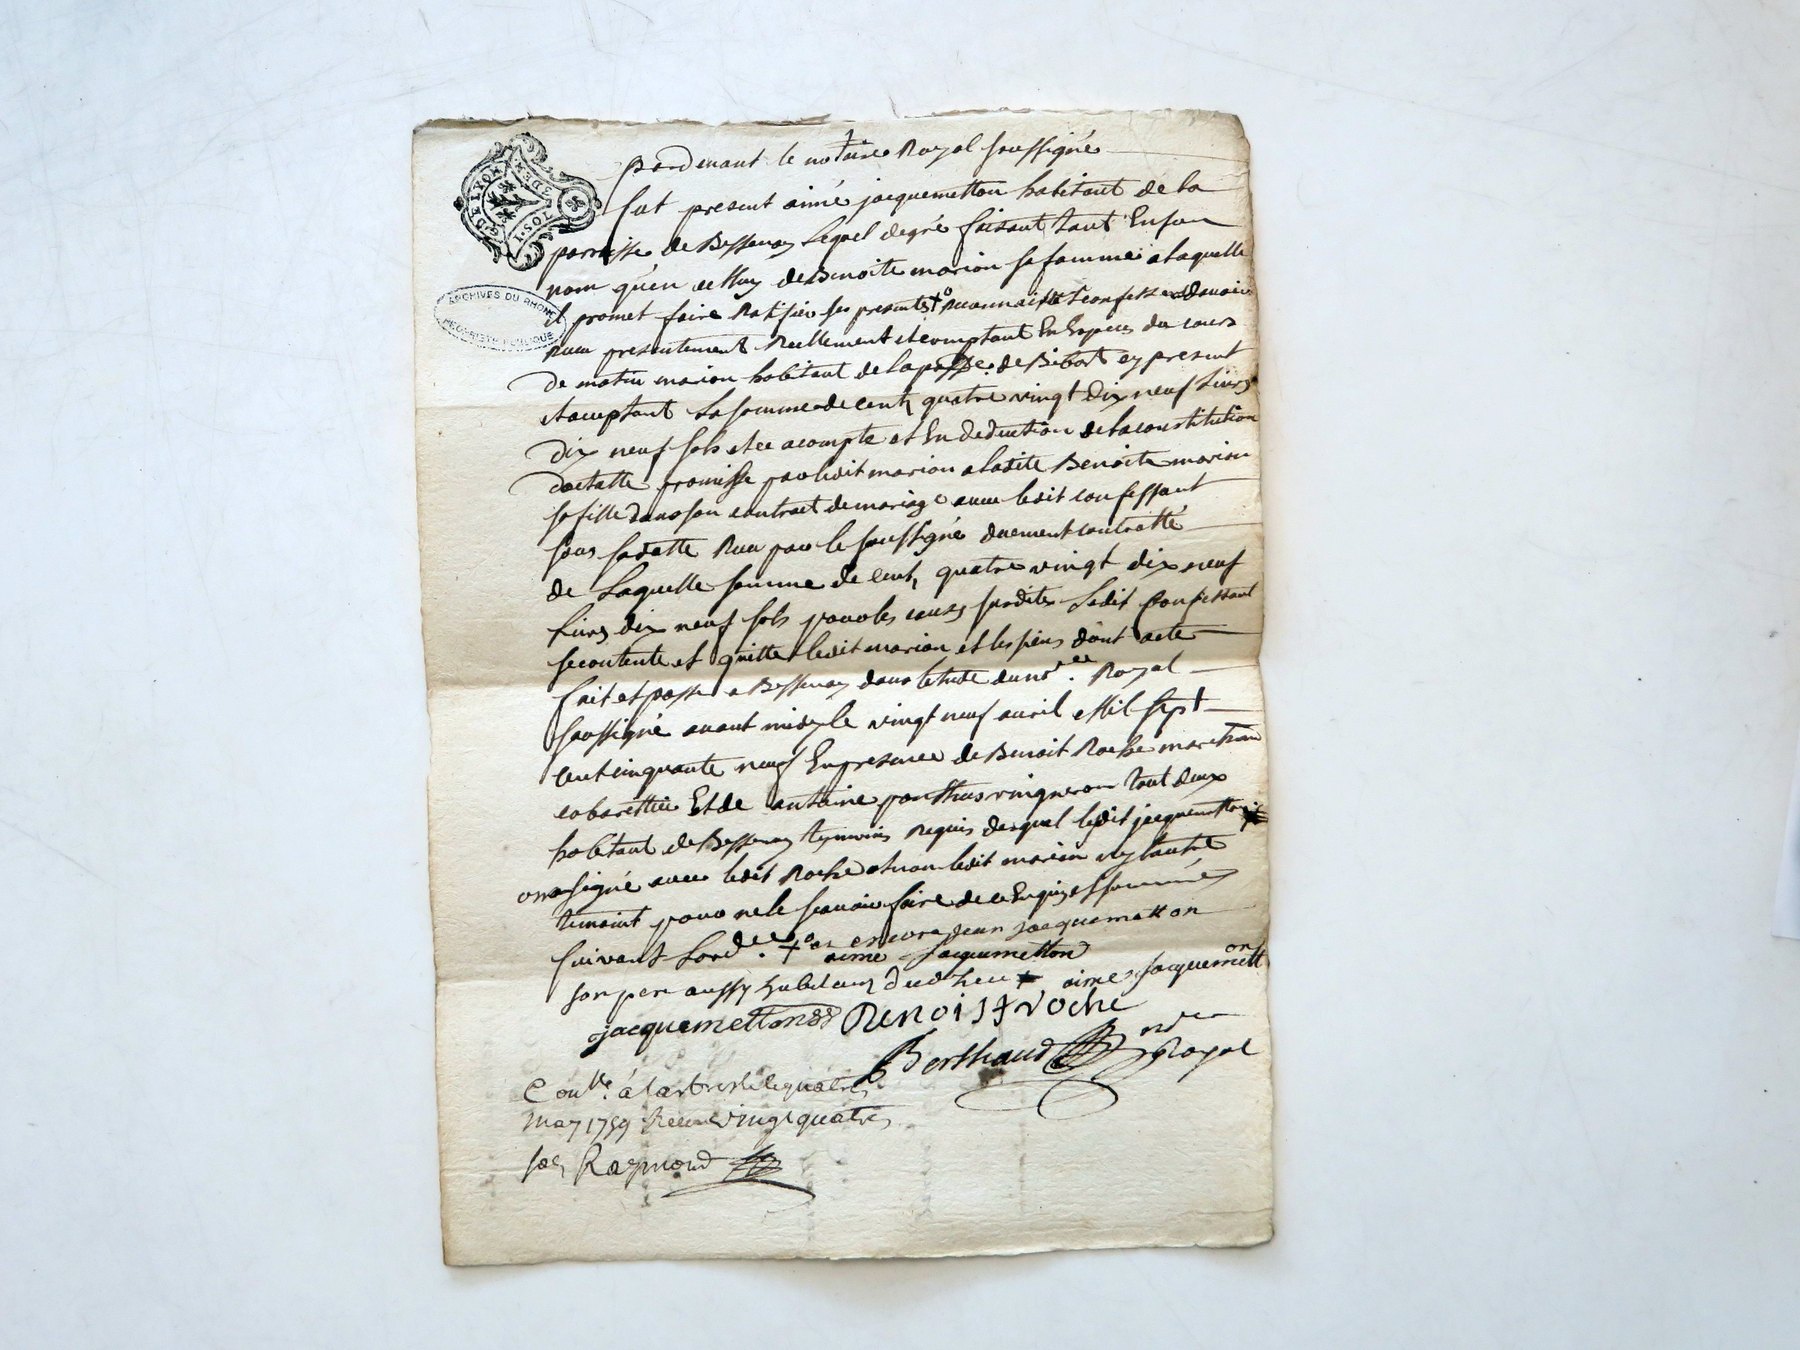 G. DE LYON
I. SOL 8 DEN
ARCHIVES DU RHONE
RÉPUBLIQUE
pardevant le notaire Royal soussigné
fut present aimé jacquemetton habitant de la
parroisse de Bessenay Lequel de gré faisant tant En son
nom qu'en celluy de Benoite marion sa famme a laquelle
il promet faire Ratifier ses presentes +° Reconnait et confesse davoir
Receu presentement Reellement et comptant En Especes du cours
De matieu marion habitant de la pasße. de Bibost cy present
et acceptant La somme de cent quatre vingt dix neuf Livres
Dix neuf sols et ce acompte et En deduction de la constitution
dottalle promisse par ledit marion a ladite Benoite marion
sa fille dans son contract de mariage avec ledit confessant
sous sa datte Receu par le soussigné duement contrallé
de Laquelle somme de cent quatre vingt dix neuf
Livres dix neuf sols pour les causes susdites Ledit Confessant
se contente et quitte ledit marion et les siens dont acte
fait et passé a Bessenay dans letude du nore. Royal
soussigné avant midy le vingt neuf avril Mil sept
cent cinquante neuf En presence de Benoit Roche marchand
cabarettier Et de antoine ponthus vigneron tout deux
habitant de Bessenay temoins Requis desquel ledit jacquemetton
ona signé avec ledit Roche et non ledit marion ny lautre
temoint pour ne le scavoir faire de ce Enquis et sommés
suivant Lordce. +° et encore jean jacquemetton
aimé Jacquemetton
son pere aussy habitant dud lieu + aimé Jacquemetton
jacquemetton BENOIST roche
Berthaud nore Royal
Conlle. á larbresle le quatre
may 1759 Receu vingt quatre
sols Raymond